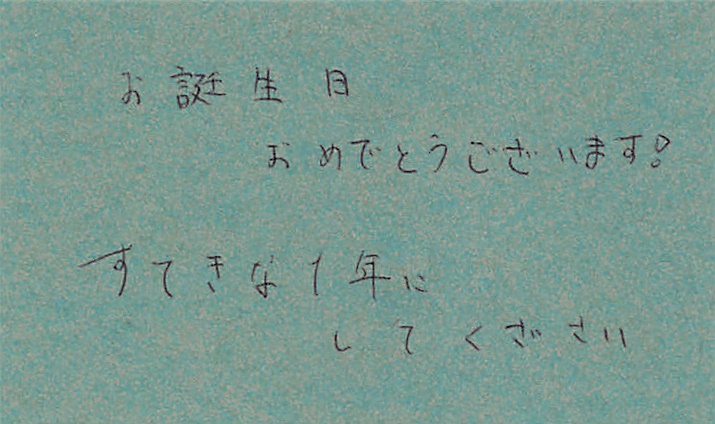 お誕生日
おめでとうございます!
すてきな1年に
してください